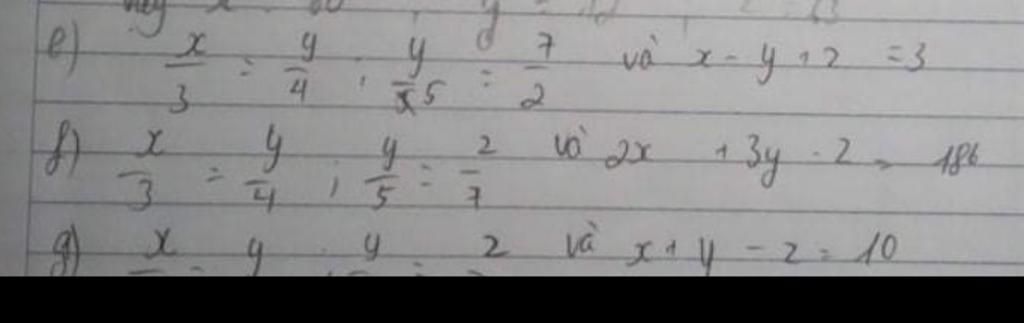 e) x/3 = y/4 ; y/5 = 7/2 và x - y + z = 3
f) x/3 = y/4 ; y/5 = z/7 và 2x + 3y - z = 186
g) x y ; y z và x + y - z = 10